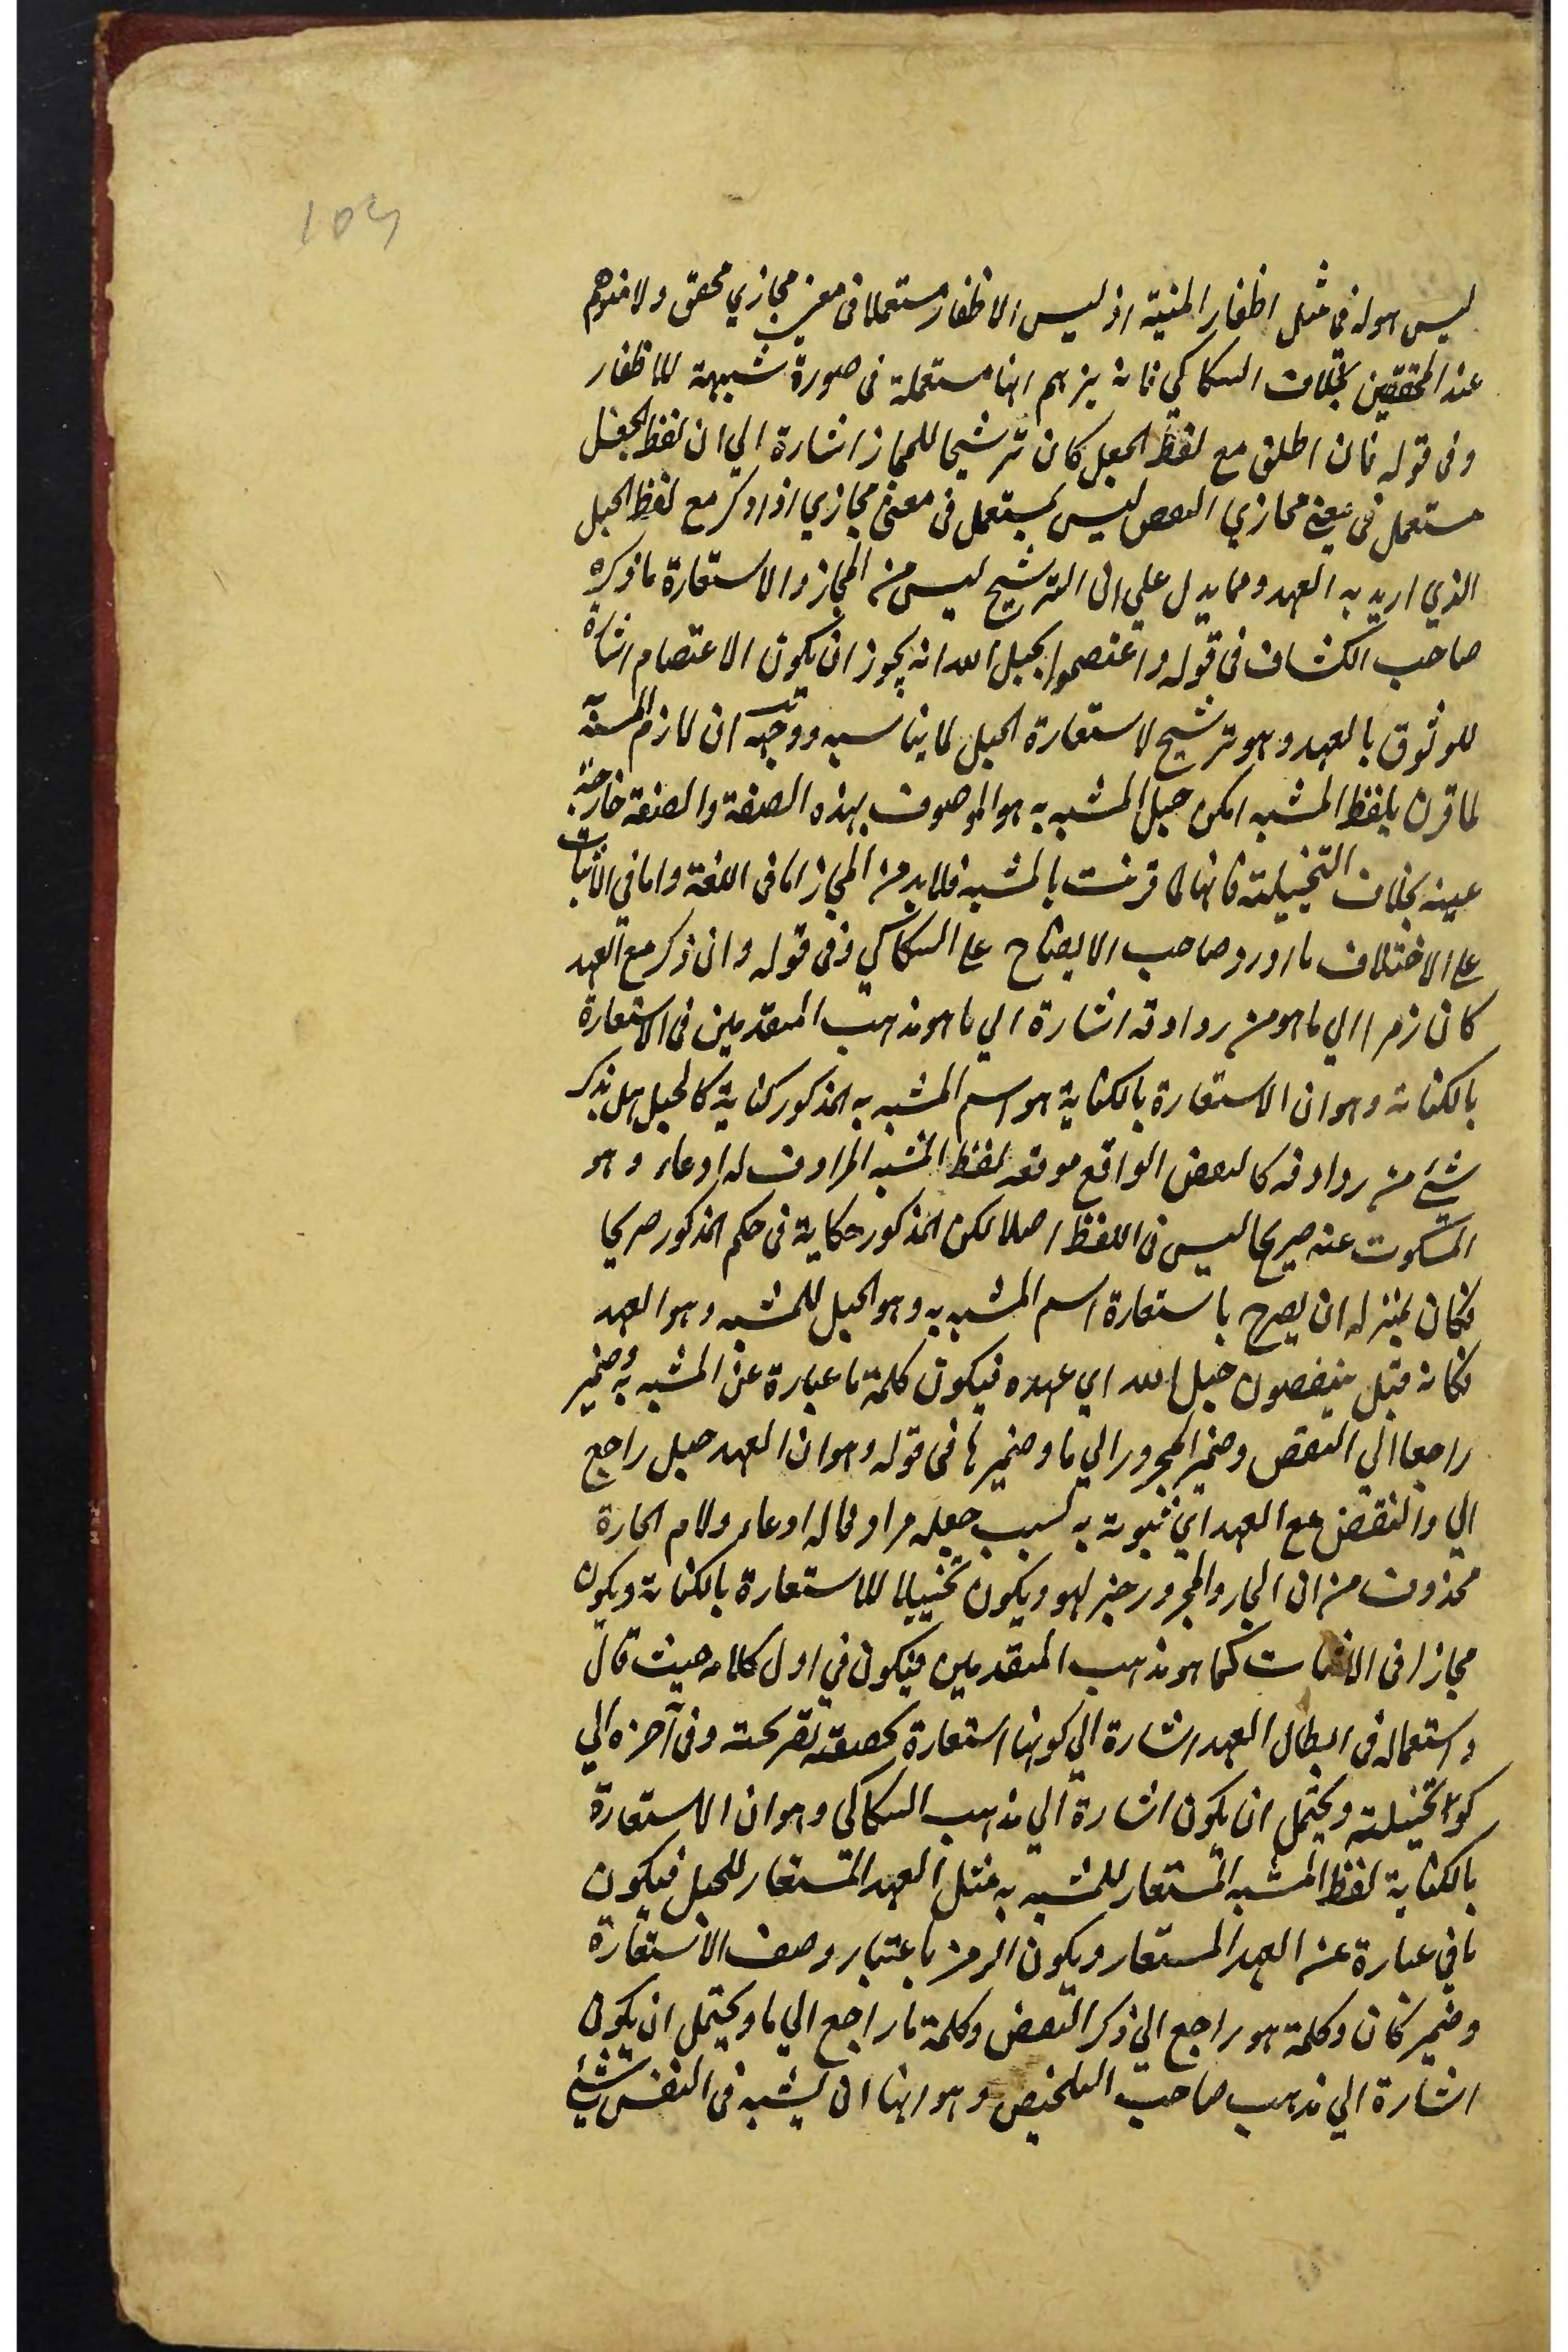 104
ليس هو له في مثل اظفار المنية اذ ليس الاظفار مستعملا فى معنى مجازي محقق ولا متوهم
عند المحققين بخلاف السكاكي فانه يزعم انها مستعملة فى صورة شبيهة للاظفار
وفى قوله فان اطلق مع لفظ الحبل كان ترشيحا للمجاز اشارة الي ان لفظ الحبل
مستعمل فى معنى مجازي النقض ليس بمستعمل فى معنى مجازي اذا ذكر مع لفظ الحبل
الذي اريد به العهد ومما يدل علي ان الترشيح ليس من المجاز والاستعارة ما ذكره
صاحب الكشاف فى قوله واعتصموا بحبل الله انه يجوز ان يكون الاعتصام استعارة
للوثوق بالعهد وهو ترشيح لاستعارة الحبل لما يناسبه ووجهه ان لازم المشبه به
لما قرن بلفظ المشبه امكن حبل المشبه به هو الموصوف بهذه الصفة والصفة خارجة
عينه بخلاف التخييلية فانها لما قرنت بالمشبه فلا بد من المجاز اما فى اللغة واما في الاثبات
على الاختلاف ما اورد صاحب الايضاح على السكاكي وفى قوله وان ذكر مع العهد
كان رمزا الي ما هو من روادفه اشارة الي ما هو مذهب المتقدمين فى الاستعارة
بالكناية وهو ان الاستعارة بالكناية هو اسم المشبه به المذكور كناية كالحبل بل بذكر
شئ من روادفه كالنقض الواقع موقعه لفظ المشبه المرادف له ادعاء وهو
المسكوت عنه صريحا ليس فى اللفظ اصلا لكن المذكور حكاية فى حكم المذكور صريحا
فكان بمنزلة ان يصرح باستعارة اسم المشبه به وهو الحبل للمشبه وهو العهد
فكانه قيل ينقضون حبل الله اي عهده فيكون كلمة ما عبارة عن المشبه به وضمير
راجعا الي النقض وضمير المجرور الي ما وضمير ها فى قوله وهو ان العهد حبل راجع
الي والنقض مع العهد اي ثبوته به بسبب جعله مرادفا له ادعاء ولام الجارة
محذوف من ان الجار والمجرور خبر لهو ويكون تخييلا للاستعارة بالكناية ويكون
مجازا فى الاثبات كما هو مذهب المتقدمين فيكون في اول كلامه حيث قال
واستعماله فى ابطال العهد اشارة الي كونها استعارة تحقيقية تصريحية وفى آخره الي
كونها تخييلية ويحتمل ان يكون اشارة الي مذهب السكاكي وهو ان الاستعارة
بالكناية لفظ المشبه المستعار للمشبه به مثل العهد المستعار للحبل فيكون
ما في عبارة عن العهد المستعار ويكون الرمز باعتبار وصف الاستعارة
وضمير كان وكلمة هو راجع الي ذكر النقض وكلمة ما راجع الي ما ويحتمل ان يكون
اشارة الي مذهب صاحب التلخيص وهو انها ان يشبه فى النفس شئ